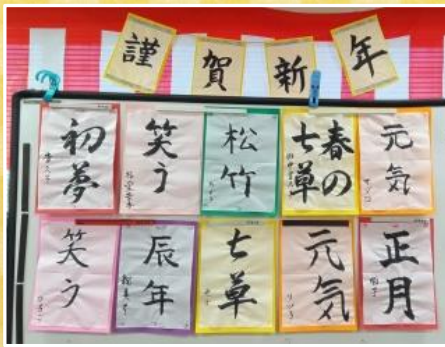 謹賀新年
初夢
笑う
松竹
春の
七草
元気
笑う
辰年
七草
元気
正月